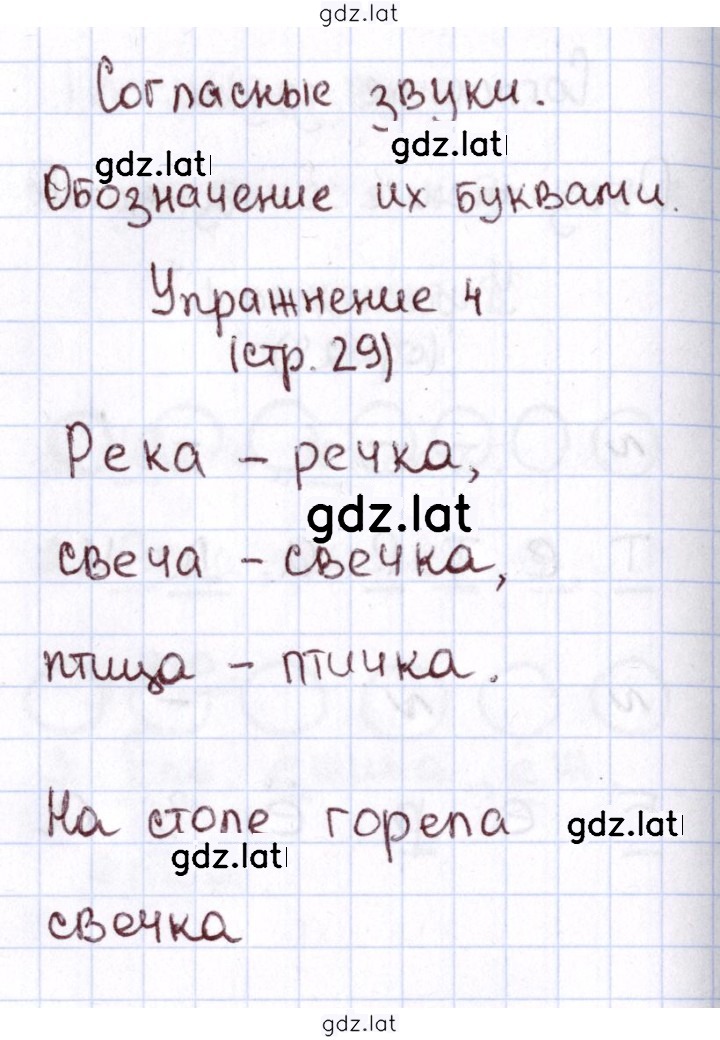 gdz.lat
Согласные звуки.
gdz.lat
gdz.lat
Обозначение их буквами.
Упражнение 4
(стр. 29)
Река – речка,
gdz.lat
свеча – свечка,
птица – птичка.
На столе горела
gdz.lat
gdz.lat
свечка
gdz.lat